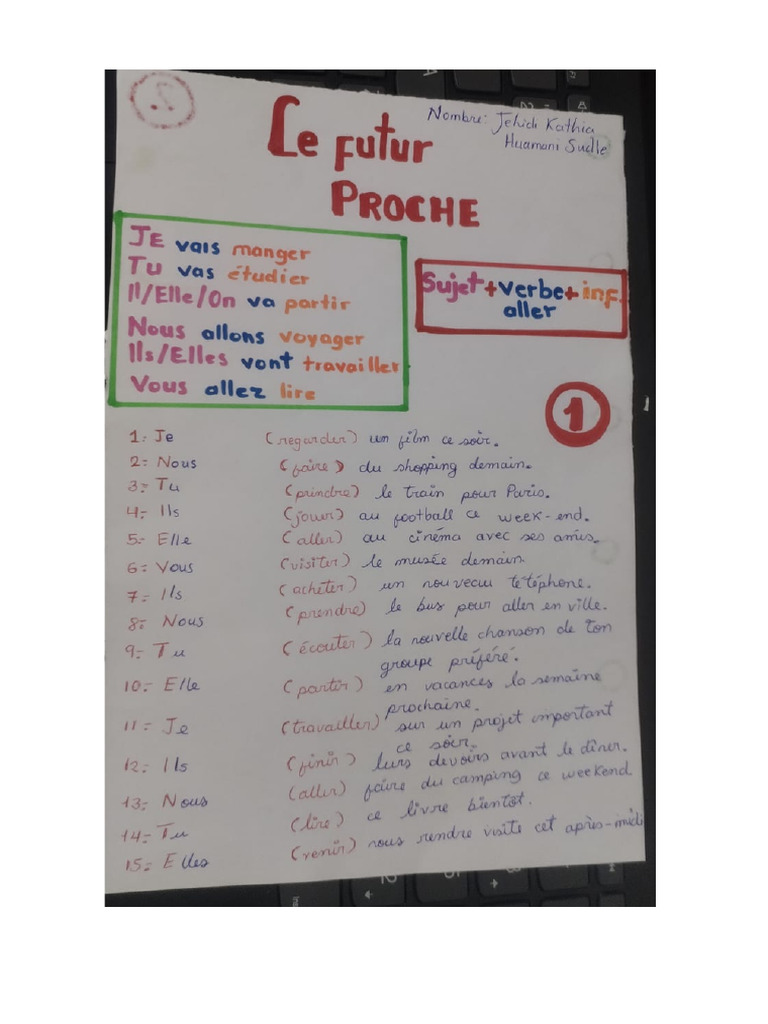 2
Nombre: Jehidi Kathia
Huamani Suclle
Le futur
PROCHE
JE vais manger
Tu vas étudier
Il/Elle/On va partir
Nous allons voyager
Ils/Elles vont travailler
Vous allez lire
Sujet+verbe+inf.
aller
1
1.- Je (regarder) un film ce soir.
2.- Nous (faire) du shopping demain.
3.- Tu (prindre) le train pour Paris.
4.- Ils (jouer) au football ce week-end.
5.- Elle (aller) au cinéma avec ses amis.
6.- Vous (visiter) le musée demain.
7.- Ils (acheter) un nouveau tetéphone.
8.- Nous (prendre) le bus pour aller en ville.
9.- Tu (écouter) la nouvelle chanson de ton
groupe préféré.
10.- Elle (partir) en vacances la semaine
prochaine.
11.- Je (travailler) sur un projet important
ce soir.
12.- Ils (finir) leurs devoirs avant le dîner.
13.- Nous (aller) faire du camping ce weekend.
14.- Tu (lire) ce livre bientôt.
15.- Elles (venir) nous rendre visite cet après-midi